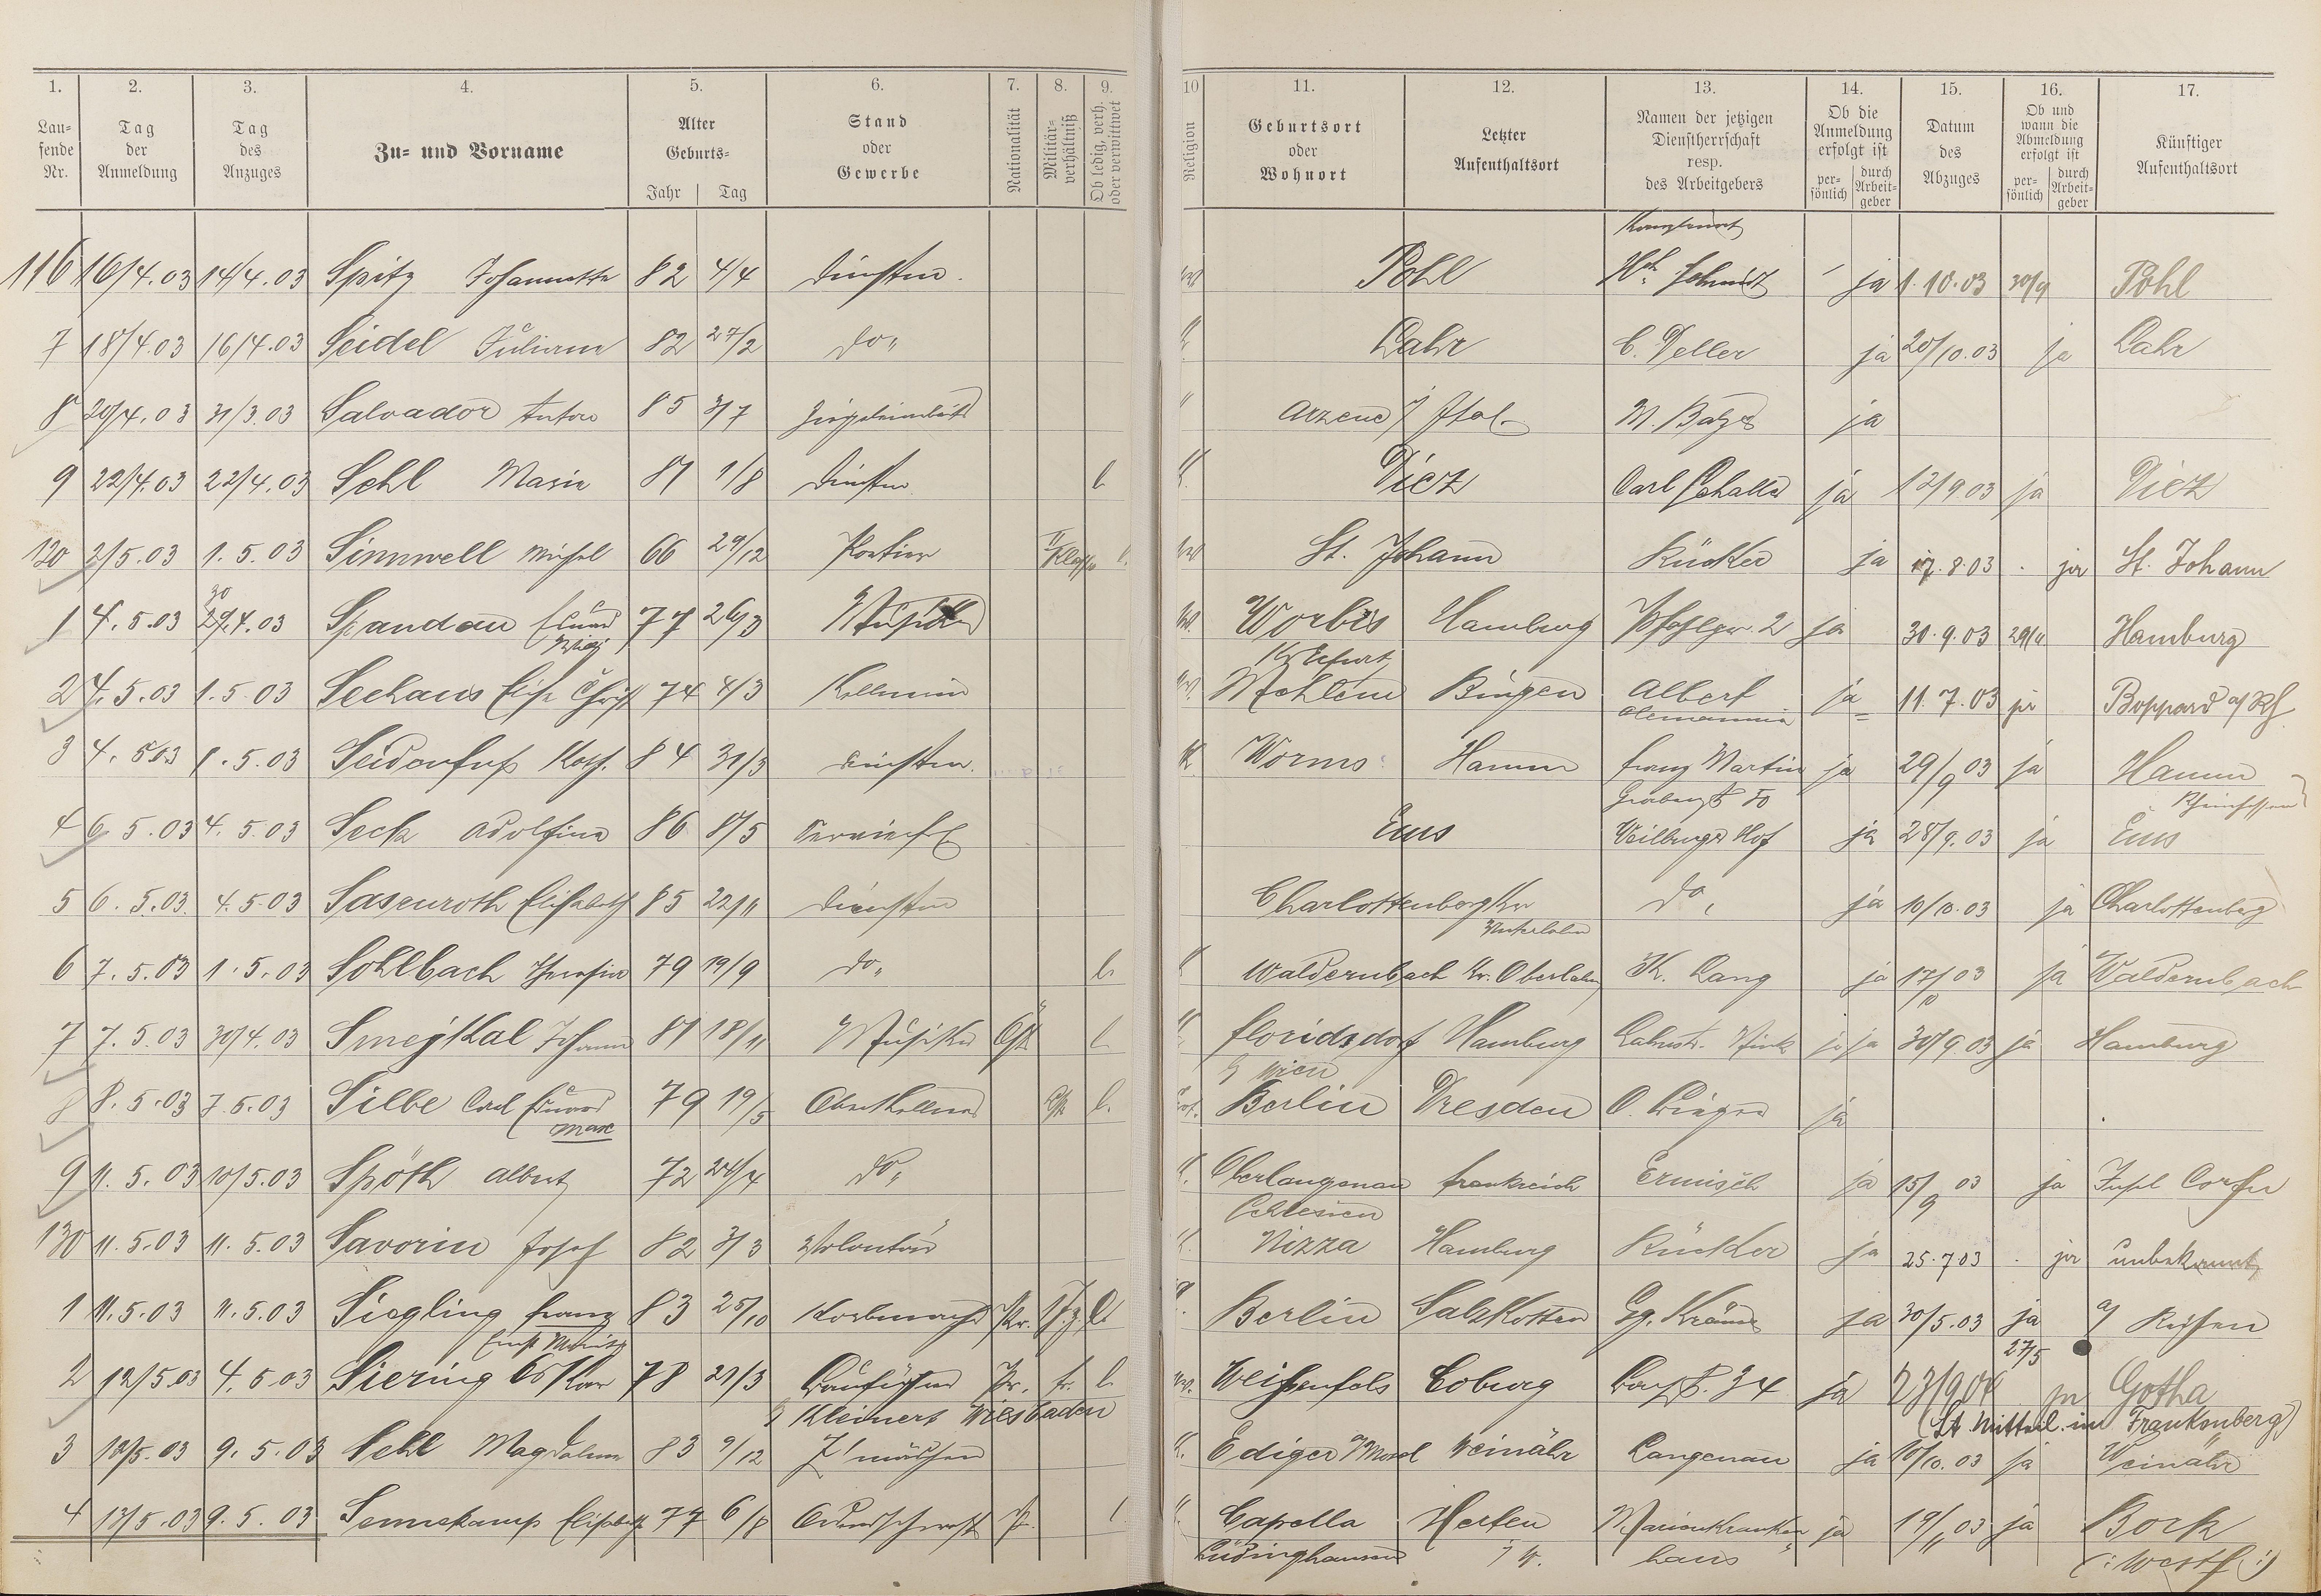 1. 2. 3. 4. 5. 6. 7. 8. 9. 10 11. 12. 13. 14. 15. 16. 17.
Lau-
fende
Nr.
Tag
der
Anmeldung
Tag
des
Anzuges
Zu- und Vorname
Alter
Geburts-
Jahr Tag
Stand
oder
Gewerbe
Nationalität
Militär-
verhältniß
Ob ledig, verh.
oder verwittwet
Religion
Geburtsort
oder
Wohnort
Letzter
Aufenthaltsort
Namen der jetzigen
Dienstherrschaft
resp.
des Arbeitgebers
Ob die
Anmeldung
erfolgt ist
per-
sönlich
durch
Arbeit-
geber
Datum
des
Abzuges
Ob und
wann die
Abmeldung
erfolgt ist
per-
sönlich
durch
Arbeit-
geber
Künftiger
Aufenthaltsort
116 16/4.03 14/4.03 Spitz Johannette 82 4/4 Dienstm. Pohl Schmidt ja 1.10.03 30/9 Pohl
7 18/4.03 16/4.03 Seidel Juliane 82 27/2 do Lahr C. Deller ja 20/10.03 ja Lahr
8 20/4.03 31/3.03 Salvador Anton 85 3/7 Arzene / Ital. ja
9 22/4.03 22/4.03 Sehl Maria 87 1/8 Dienstm l Diez Carl Schaller ja 12/9 03 ja Diez
120 2/5.03 1.5.03 Sinnwell Michel 66 29/12 Portier II Klasse l. St. Johann Rücker ja 17.8.03 ja St. Johann
30
1 4.5.03 29.4.03 Spandau Eduard 77 26/3 Musiker Worbis Hamburg Pfahlgr. 2 ja 30.9.03 Hamburg
Kr Erfurt
2 4.5.03 1.5.03 Seehaus Elise 74 4/3 Kellnerin Mehlem Bingen Albert ja 11.7.03 ja Boppard a/Rh
Alemannia
3 4.5.03 1.5.03 Seidenfuß Kath. 84 31/3 Dienstm. K Worms Hamm Franz Martin ja 29/9 03 ja Hamm
Grabenstr 50 Rheinhessen
4 6.5.03 4.5.03 Seck Adolfine 86 8/5 Ems Weilburger Hof ja 28/9.03 ja Ems
5 6.5.03. 4.5.03 Sasenroth Elisabeth 85 22/11 Dienstm Charlottenberg Kr do, ja 10/10.03 ja Charlottenberg
Unterlahn
6 7.5.03 1.5.03 Sohlbach Theresia 79 19/9 do l. Waldernbach Kr. Oberlahn K. Lang ja 17/10 03 ja Waldernbach
7 7.5.03 30/4.03 Smejkal Johann 87 18/11 Musiker l Floridsdorf Hamburg Lahnstr. ja ja 30/9 03 ja Hamburg
b/ Wien
8 8.5.03 7.5.03 Silbe Carl Eduard 79 19/5 Oberkellner l. Berlin Dresden ja
Max
9 11.5.03 10/5.03 Späth Albert 72 24/4 do Oberlangenau Frankreich Ermisch ja 15/9 03 ja Insel Corfu
Schlesien
130 11.5.03 11.5.03 Savorin Josef 82 3/3 Volontär Nizza Hamburg Rücker ja 25.7 03 ja unbekannt
1 11.5.03 11.5.03 Siegling Franz 83 25/10 Korbmacher Pr. l Berlin Salzkotten Gg. Krämer ja 30/5.03 ja a/ Reisen
Ernst Moritz 27/5
2 12/5.03 4.5.03 Siering Oskar 78 21/3 Bauführer Pr. l Weißenfels Coburg 34 ja 23/9 04 ja Gotha
b/ Kleinert Wiesbaden (Lt. Mitteil. in Frankenberg)
3 12/5.03 9.5.03 Sehl Magdalena 83 9/12 Z'mädchen K. Ediger a/Mosel Weinähr Langenau ja 10/10.03 ja Weinähr
4 13/5.03 9.5.03 Sennekamp Elisabeth 77 6/8 Ordensschwester l Capelle Herten Marienkranken ja 19/11 03 ja Bork
Lüdinghausen i/W. haus (: Westf :)